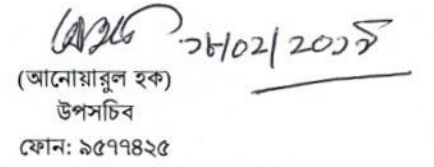 ২৮/০২/২০১৮
(আনোয়ারুল হক)
উপসচিব
ফোন: ৯৫৭৭৪২৫